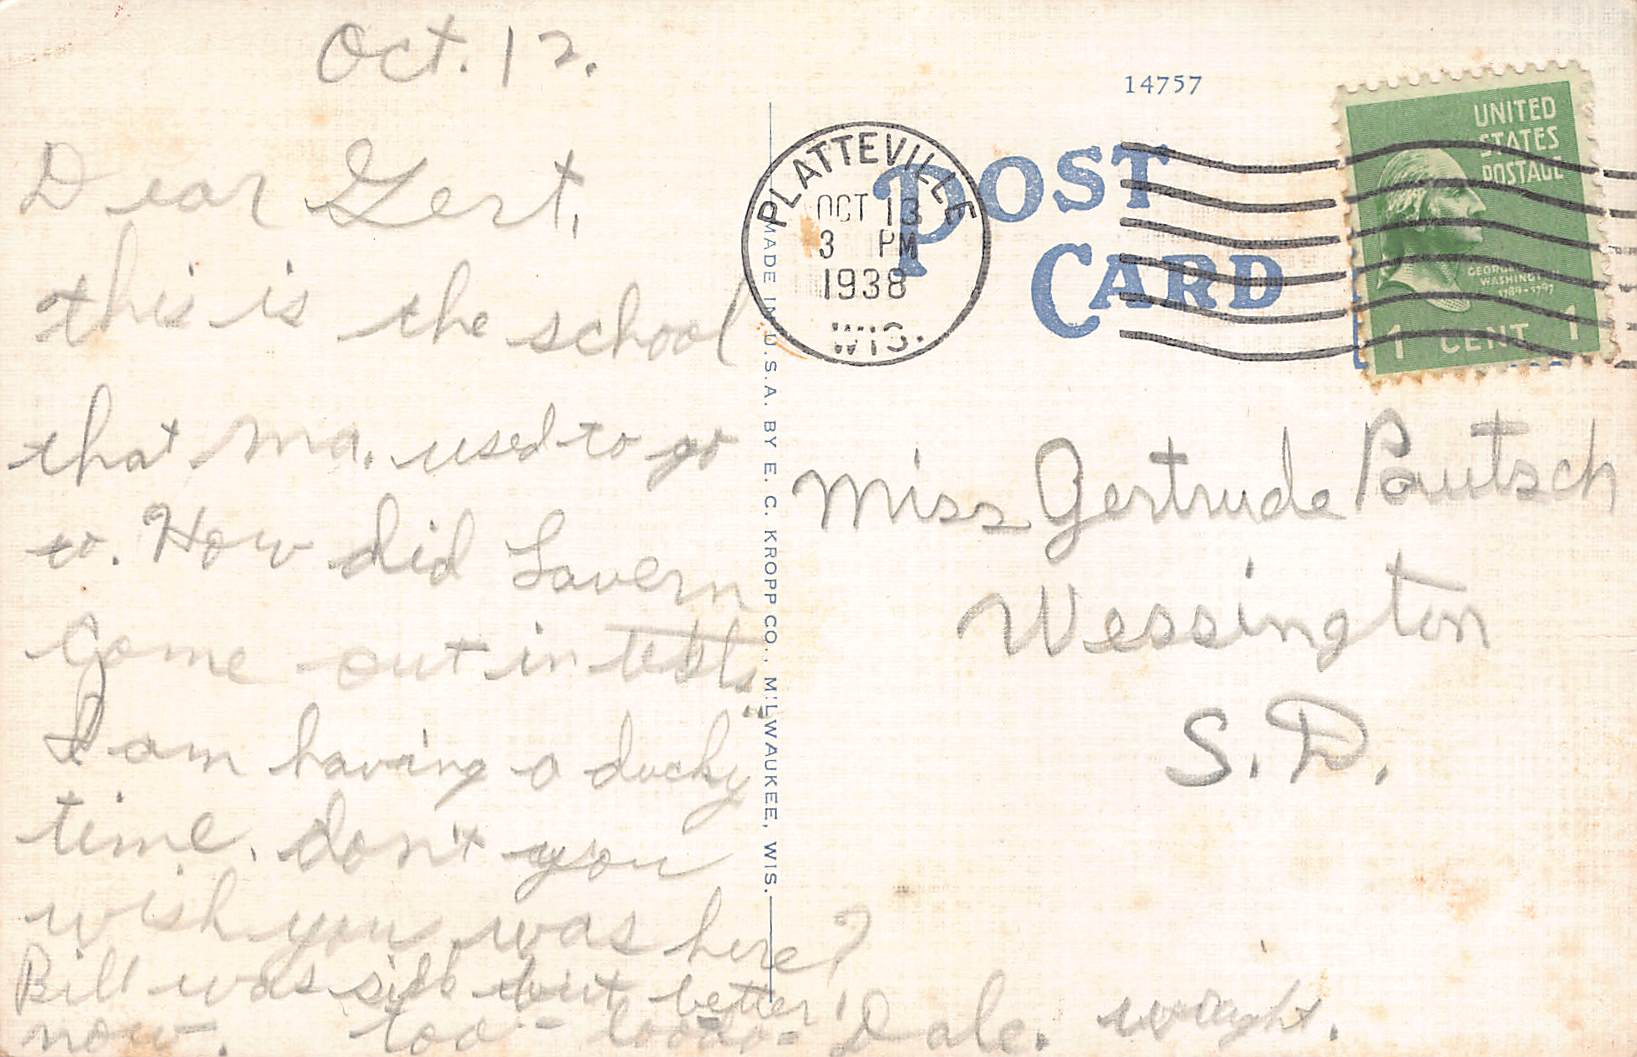 Oct. 12.
Dear Gert,
this is the school
that ma. used to go
to. How did Lavern
Come out in tests
I am having a ducky
time. don't you
wish you was here?
Bill was sick but better
now. too - looo- Dale. wright.
14757
POST
CARD
PLATTEVILLE
OCT 13
3 PM
1938
WIS.
UNITED
STATES
POSTAGE
GEORGE
WASHINGTON
1789-1797
1 CENT 1
MADE IN U.S.A. BY E. C. KROPP CO., MILWAUKEE, WIS.
Miss Gertrude Pautsch
Wessington
S.D.